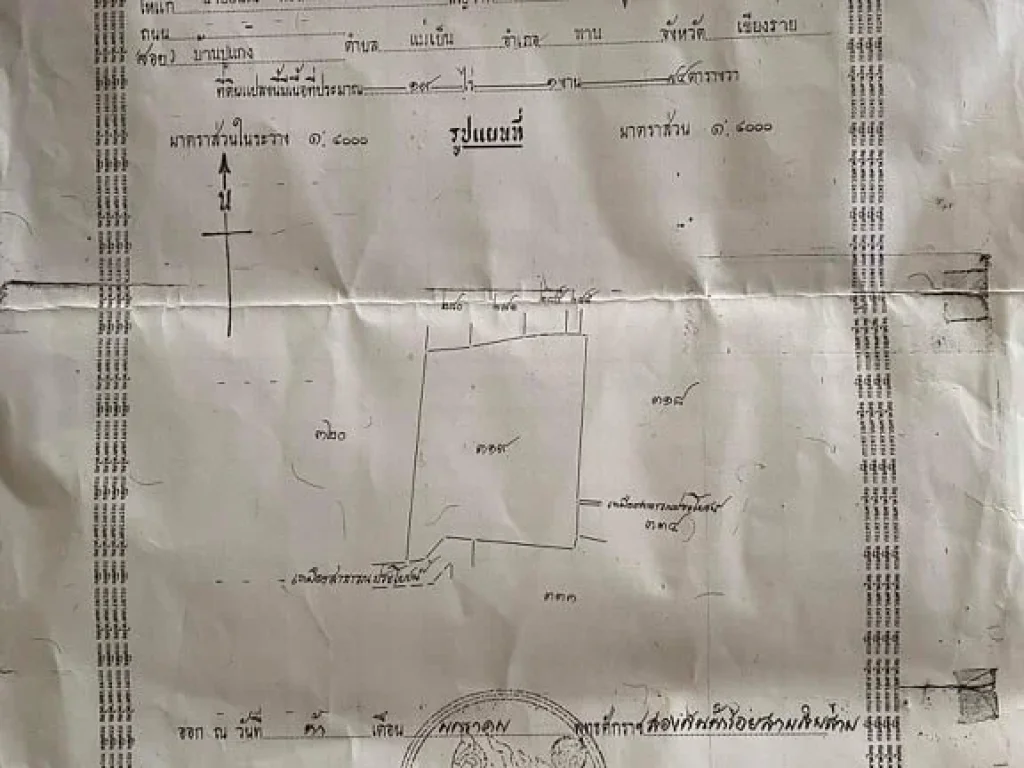 ให้แก่
ถนน - ตำบล แม่เย็น อำเภอ พาน จังหวัด เชียงราย
(ซอย) บ้านปูแกง
ที่ดินแปลงนี้มีเนื้อที่ประมาณ ๑๙ ไร่ ๑ งาน ๙๔ ตารางวา
มาตราส่วนในระวาง ๑: ๔๐๐๐ รูปแผนที่ มาตราส่วน ๑: ๔๐๐๐
น
๓๑๘
๓๒๐
๓๑๙
เหมืองสาธารณประโยชน์
๓๓๔
เหมืองสาธารณประโยชน์
๓๓๓
ออก ณ วันที่ ห้า เดือน มกราคม พุทธศักราช สองพันห้าร้อยสามสิบสาม